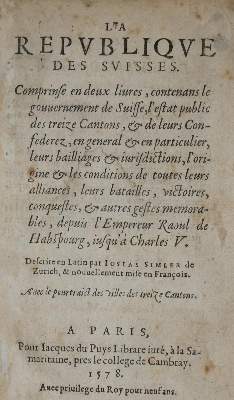 LA
REPVBLIQVE
DES SVISSES.
Comprinse en deux liures, contenans le
gouuernement de Suisse, l'estat public
des treize Cantons, & de leurs Con-
federez, en general & en particulier,
leurs bailliages & iurisdictions, l'ori-
gine & les conditions de toutes leurs
alliances, leurs batailles, victoires,
conquestes, & autres gestes memora-
bles, depuis l'Empereur Raoul de
Habspourg, iusqu'à Charles V.
Descrite en Latin par IOSIAS SIMLER de
Zurich, & nouuellement mise en François.
Auec le pourtraict des villes des treize Cantons.
A PARIS,
Pour Iacques du Puys Libraire iuré, à la Sa-
maritaine, pres le college de Cambray.
1578.
Auec priuilege du Roy pour neuf ans.